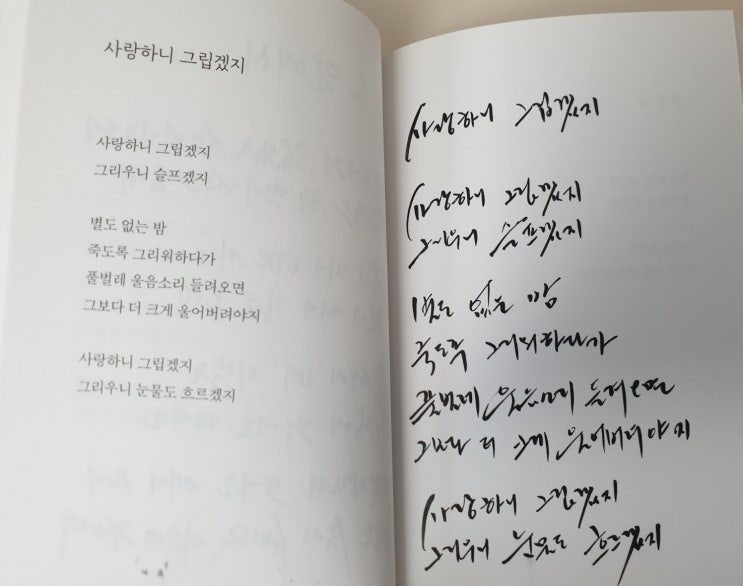 사랑하니 그립겠지
사랑하니 그립겠지
그리우니 슬프겠지
별도 없는 밤
죽도록 그리워하다가
풀벌레 울음소리 들려오면
그보다 더 크게 울어버려야지
사랑하니 그립겠지
그리우니 눈물도 흐르겠지
사랑하니 그립겠지
사랑하니 그립겠지
그리우니 슬프겠지
별도 없는 밤
죽도록 그리워하다가
풀벌레 울음소리 들려오면
그보다 더 크게 울어버려야지
사랑하니 그립겠지
그리우니 눈물도 흐르겠지